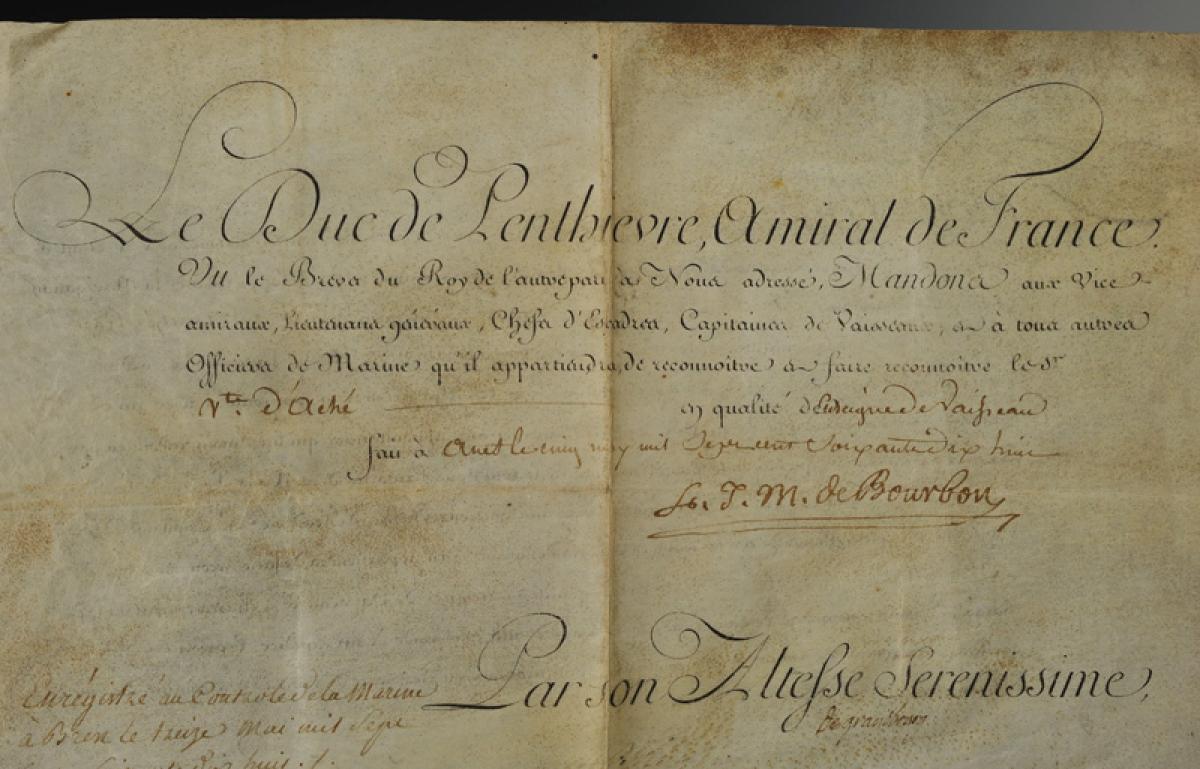 Le Duc de Penthievre, Amiral de France.
Vu le Brevet du Roy de l'autre part à Nous adressé, Mandons aux Vice
amiraux, Lieutenans généraux, Chefs d'Escadres, Capitaines de Vaisseaux, et à tous autres
Officiers de Marine qu'il appartiendra, de reconnoître et faire reconnoître le Sr
Vte. d'Aché en qualité d'Enseigne de Vaisseau
fait à Anet le cinq may mil Sept cent Soixante dix huit
L. J. M. de Bourbon
Par son Altesse Serenissime,
De grandbourg
Enrégistré au Controle de la Marine
à Brest le treize Mai mil Sept
cent Soixante dix huit ./.